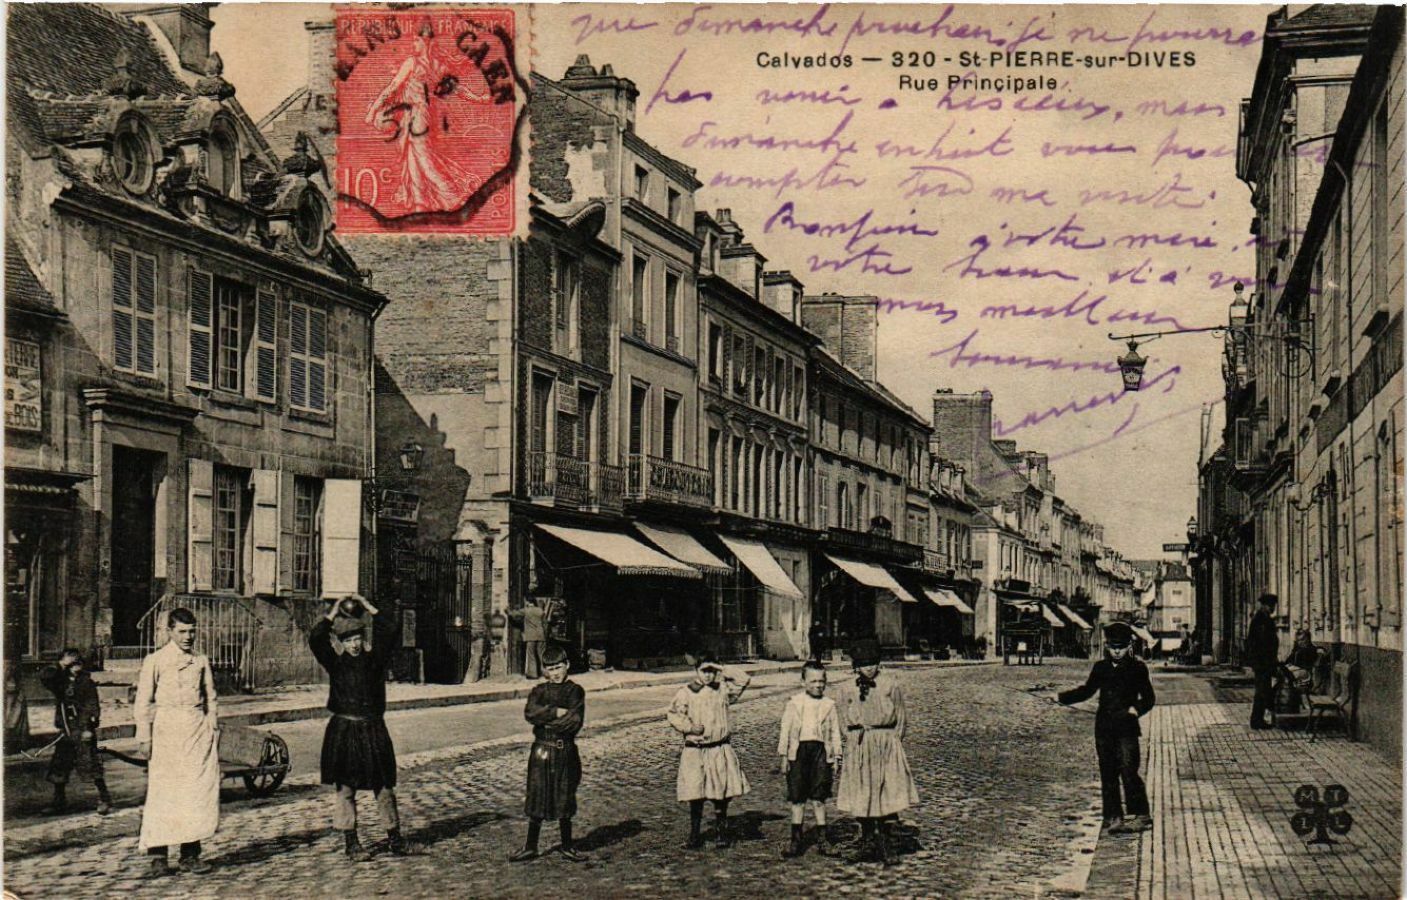 REPUBLIQUE FRANÇAISE
MANS A CAEN
18
10 c
POSTES
Calvados — 320 - St-PIERRE-sur-DIVES
Rue Principale
que dimanche prochain je ne pourrai
pas venir à Lisieux, mais
dimanche en huit vous pouvez
compter sur ma visite.
Bonjour à votre mari, à
votre soeur et à vous
mes meilleurs
souvenirs
BOIS
MTIL